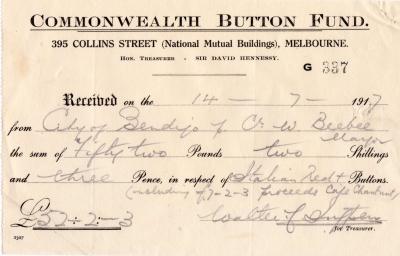 COMMONWEALTH BUTTON FUND.
395 COLLINS STREET (National Mutual Buildings), MELBOURNE.
HON. TREASURER - SIR DAVID HENNESSY.
G 337
Received on the 14 - 7 - 1917
from City of Bendigo p. Cr W. Beebee
Mayor
the sum of Fifty two Pounds two Shillings
and three Pence, in respect of Italian Red + Buttons.
(including 7-2-3 proceeds Cafe Chantant)
£52-2-3 Walter
for Treasurer.